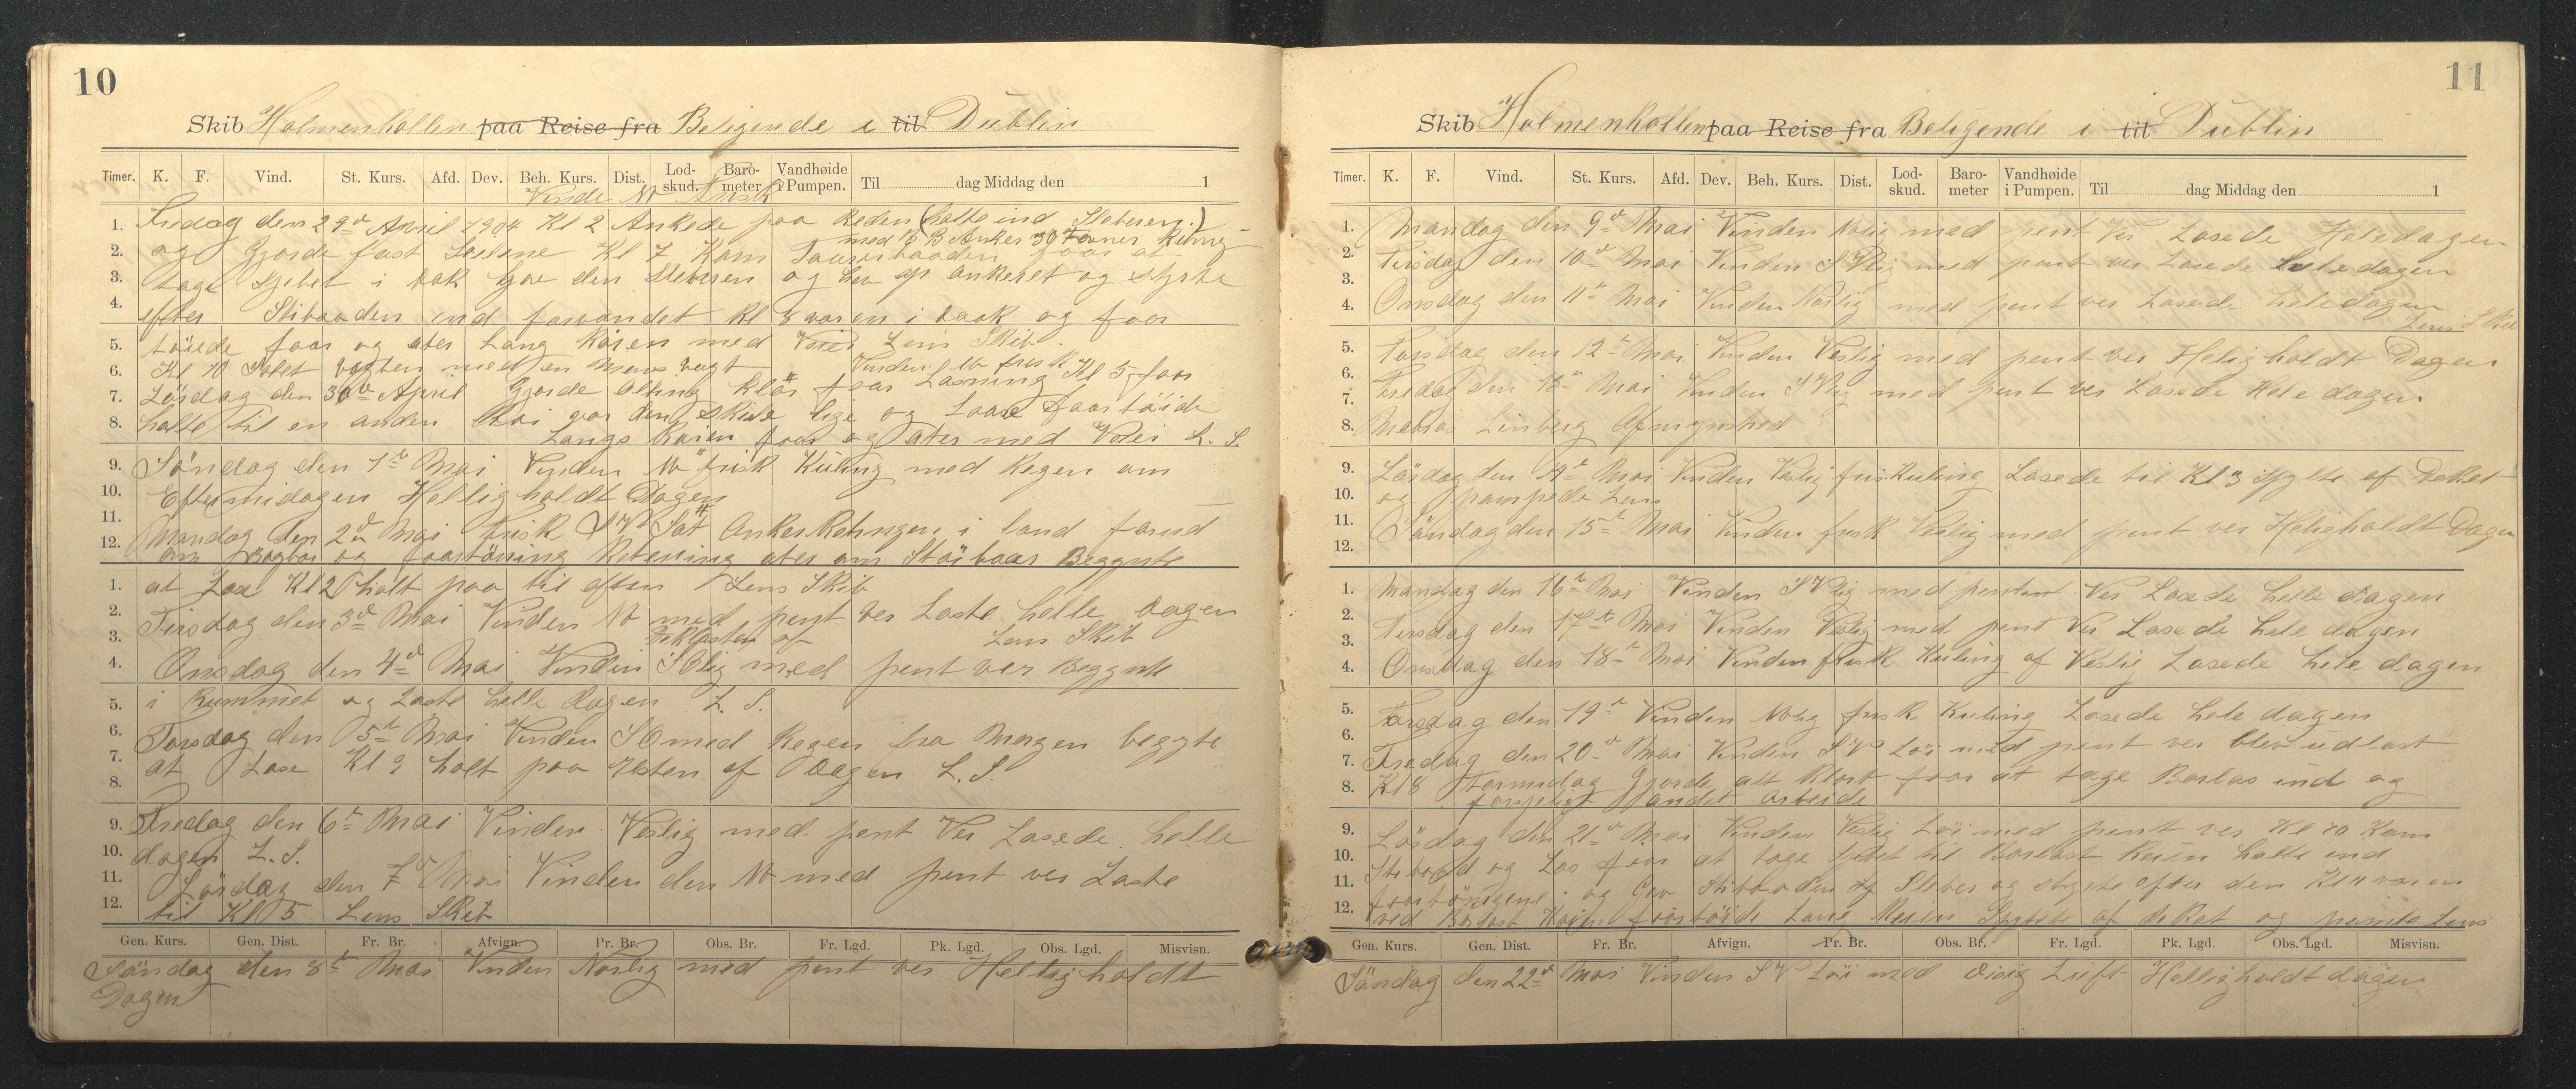 10
Skib Holmenkollen paa Reise fra Beligende i til Dublin
Timer. K. F. Vind. St. Kurs. Afd. Dev. Beh. Kurs. Dist. Lod-skud. Baro-meter Vandhøide i Pumpen. Til dag Middag den 1
Vinden NV frisk
1. Fredag den 29d April 1904 Kl 2 Ankrede paa Reden (
med B Anker 30 Favner
2. og Gjorde fast Seilene Kl 7 Kom foor at
3. tage Sjibet i Dok Gav den og hev op ankeret og styrte
4. efter ind Kl 8 varen i Dock og foor
5. töiede foor og ater Lang Kaien med Lens Skib
6. Kl 10 vagten med en Mans vagt Vinden NV frisk Kl 5 foor
7. Lördag den 30d April Gjorde Alting klar foor Losning
8. halte til en anden Kai lige og
Langs Kaien foor og ater med L. S.
9. Söndag den 1te Mai Vinden NV frisk Kuling med Regen om
10. Eftermidagen Helligholdt Dagen
11. Mandag den 2d Mai frisk SV Sat i land forud
12. om Bagbor og ater om Beggynte
1. at Lose Kl 2 holt paa til eften Lens Skib
2. Tirsdag den 3d Mai Vinden NV med pent Ver Loste helle Dagen
3. af Lens Skib
4. Onsdag den 4d Mai Vinden SOlig med pent ver Beggynte
5. i Rummet og Loste helle Dagen L. S.
6. Torsdag den 5te Mai Vinden SO med Regen fra Morgen begyte
7. at Lose Kl 9 holt paa Resten af Dagen L. S.
8.
9. Fredag den 6te Mai Vinden Vestlig med pent Ver Losede helle
10. dagen L. S.
11. Lördag den 7d Mai Vinden den NV med pent ver Loste
12. til Kl 5 Lens Skib
Gen. Kurs. Gen. Dist. Fr. Br. Afvign. Pr. Br. Obs. Br. Fr. Lgd. Pk. Lgd. Obs. Lgd. Misvisn.
Söndag den 8te Mai Vinden Norlig med pent ver Helligholdt
Dagen
11
Skib Holmenkollen paa Reise fra Beligende i til Dublin
Timer. K. F. Vind. St. Kurs. Afd. Dev. Beh. Kurs. Dist. Lod-skud. Baro-meter Vandhøide i Pumpen. Til dag Middag den 1
1. Mandag den 9d Mai Vinden Nolig med pent Ver Losede Heledagen
2. Tirsdag den 10d Mai Vinden SVlig med pent ver Losede hele dagen
3.
4. Onsdag den 11te Mai Vinden Norlig med pent ver Losede hele dagen
Lens Skib
5. Torsdag den 12te Mai Vinden Vestlig med pent ver Heligholdt Dagen
6.
7. Fredag den 13te Mai Vinden SVlig med pent ver Losede Hele dagen
8. Linberg
9. Lördag den 14d Mai Vinden Vestlig frisk Kuling Losede til Kl 3 spylte af Dekket
10. og pompede Lens
11. Söndag den 15te Mai Vinden frisk Vestlig med pent ver Heligholdt Dagen
12.
1. Mandag den 16te Mai Vinden SVlig med pent Ver Losede helle dagen
2. Tirsdag den 17te Mai Vinden Vestlig med pent Ver Losede hele dagen
3.
4. Onsdag den 18te Mai Vinden frisk Kuling af Vestlig Losede hele dagen
5. Torsdag den 19te Vinden Nolig frisk Kuling Losede hele dagen
6.
7. Fredag den 20d Mai Vinden SV Löi med pent ver blev udlost
8. Kl 8 Formidag Gjorde alt klart foor at tage Barlas ind og
forskjeligt andet arbeide
9. Lördag den 21d Mai Vinden Vestlig Löi med pent ver Kl 10 Kom
10. og Los foor at tage Sjibet til Barlast Kaien halte ind
11. og Gav og styrte efter den Kl 11 varen
12. ved Barlast Kaien foortöide Lans Kaien Spylte af deket og Lens
Gen. Kurs. Gen. Dist. Fr. Br. Afvign. Pr. Br. Obs. Br. Fr. Lgd. Pk. Lgd. Obs. Lgd. Misvisn.
Söndag den 22d Mai Vinden SV Löi med Disig Luft Helligholdt dagen